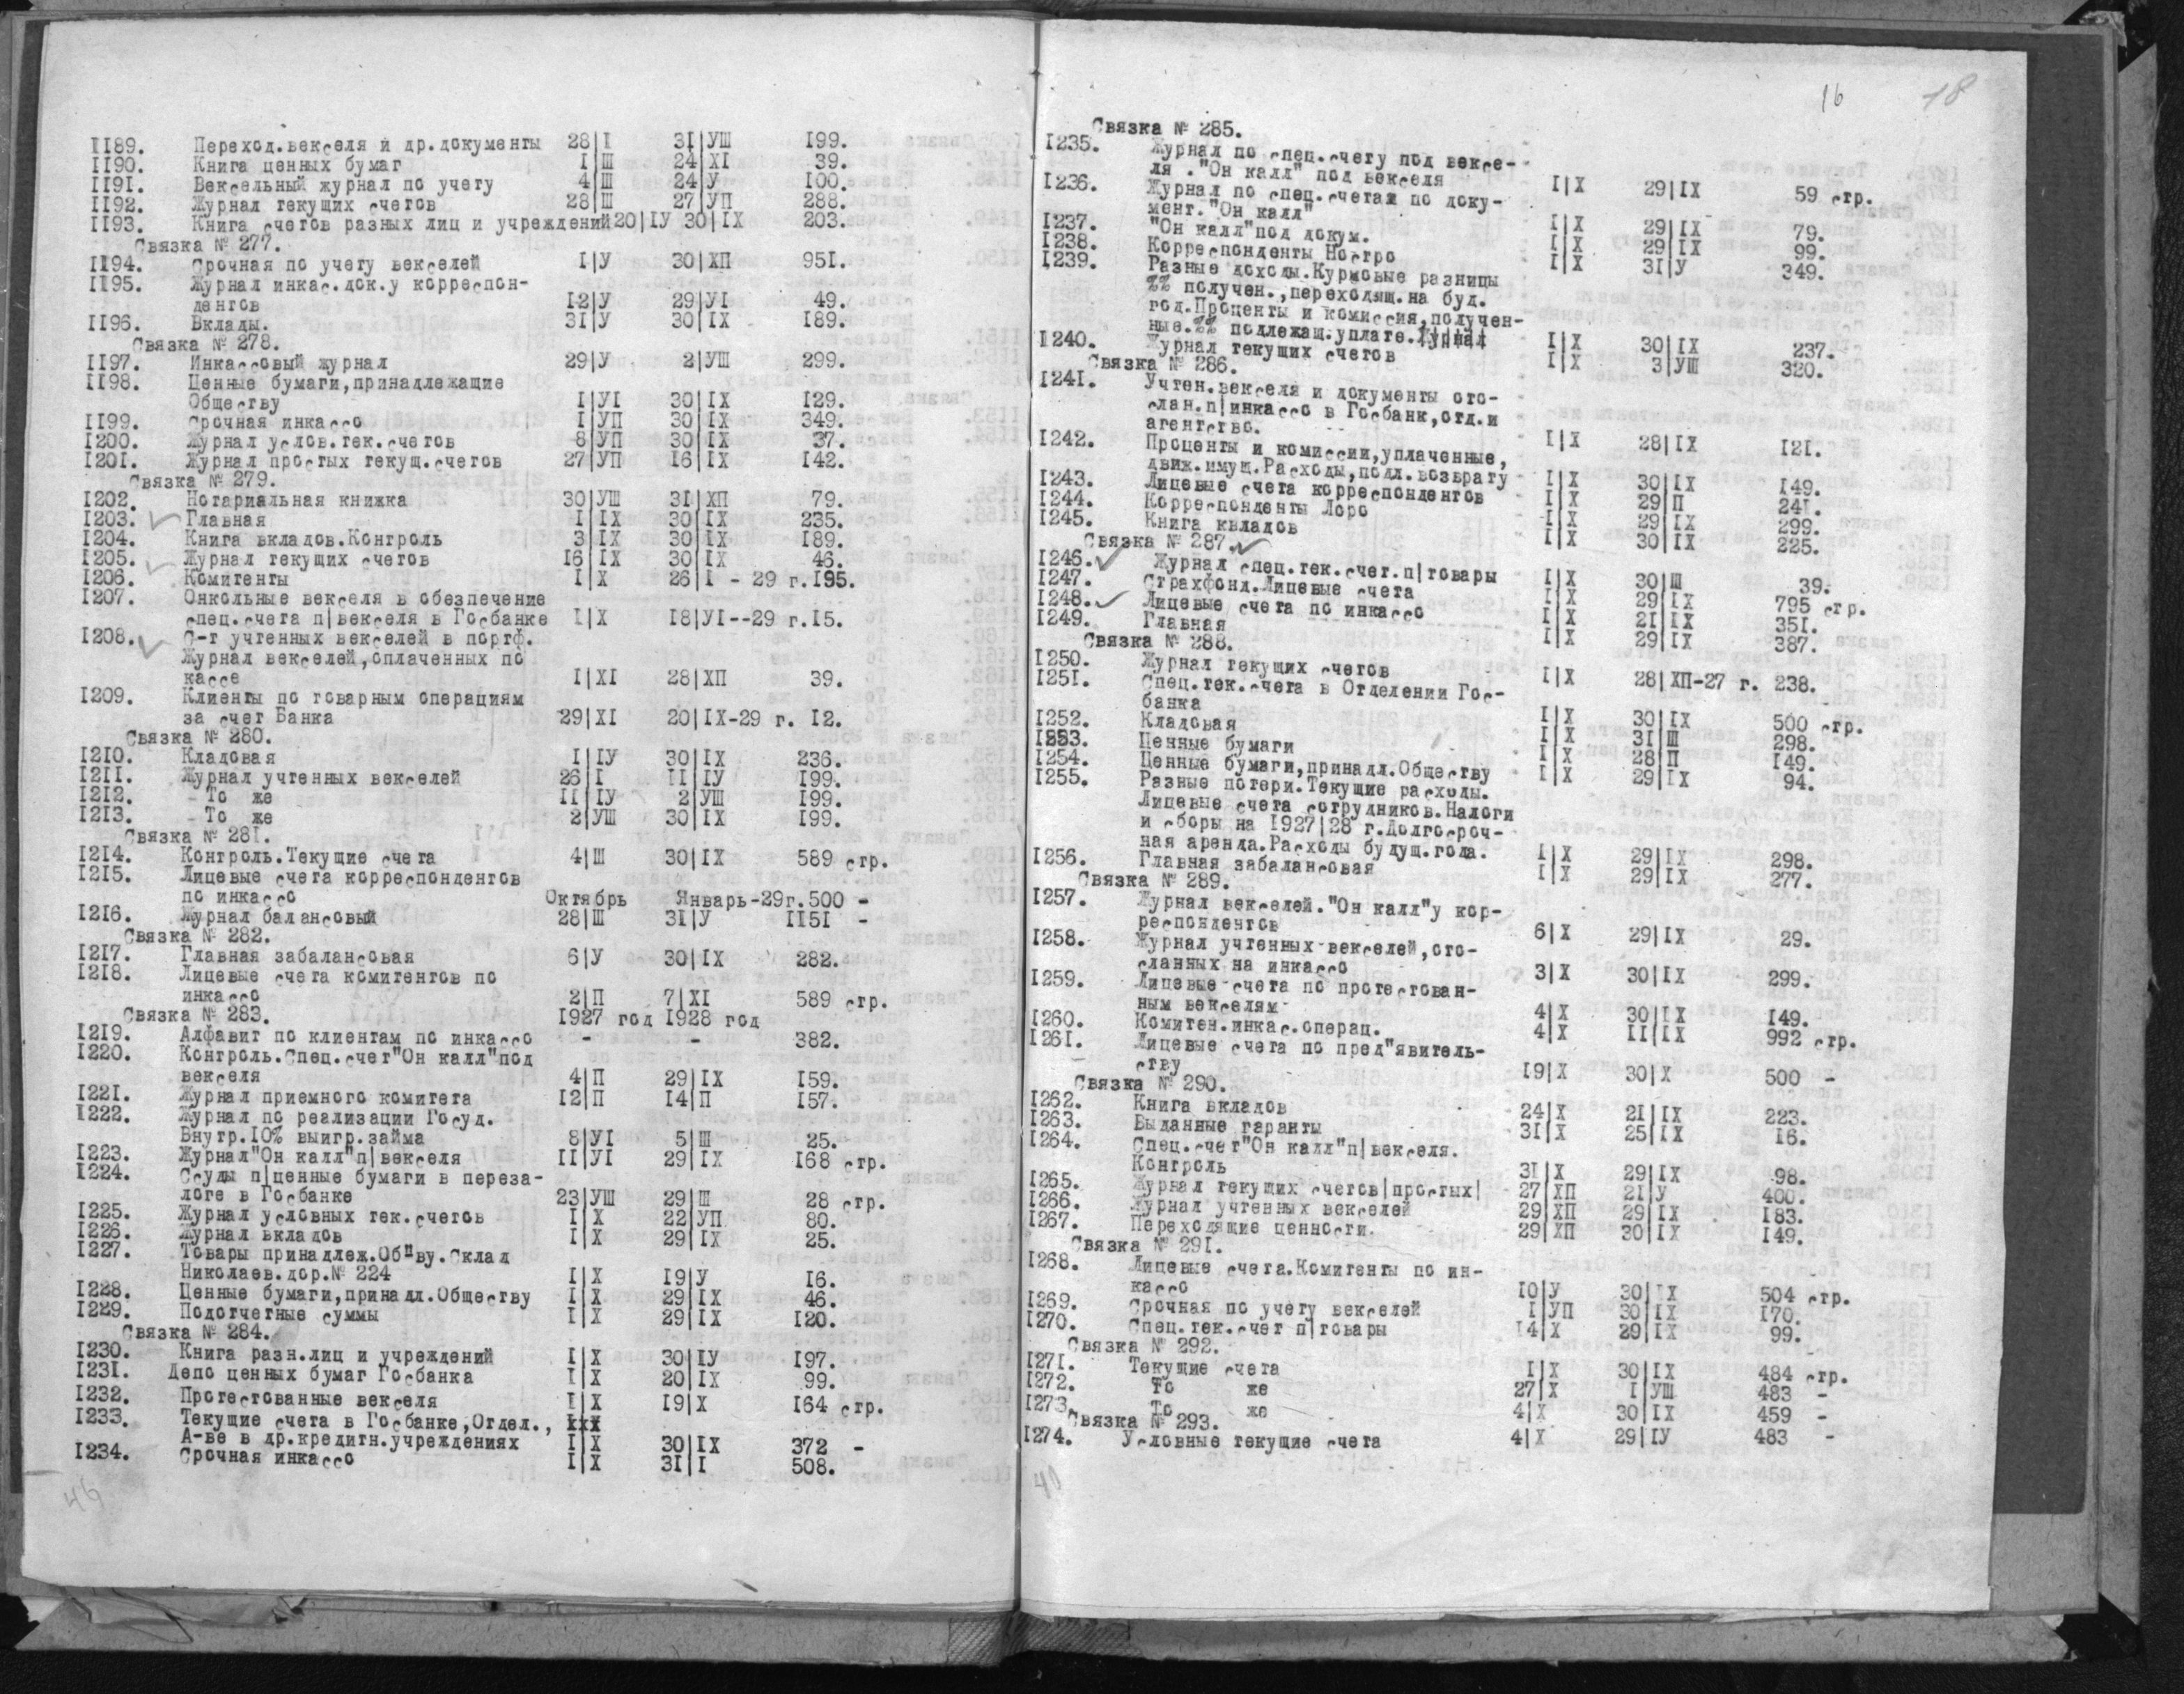 1189. Переход.векселя и др.документы 28|I 31|УШ 199.
1190. Книга ценных бумаг I|Ш 24|XI 39.
1191. Вексельный журнал по учету 4|Ш 24|У 100.
1192. Журнал текущих счетов 28|Ш 27|УП 288.
1193. Книга счетов разных лиц и учреждений 20|IУ 30|IX 203.
Связка № 277.
1194. Срочная по учету векселей I|У 30|ХП 951.
1195. Журнал инкас.док.у корреспон-
дентов 12|У 29|УI 49.
1196. Вклады. 31|У 30|IX 189.
Связка № 278.
1197. Инкассовый журнал 29|У 2|УШ 299.
1198. Ценные бумаги,принадлежащие
Обществу I|УI 30|IX 129.
1199. Срочная инкассо I|УП 30|IX 349.
1200. Журнал услов.тек.счетов 8|УП 30|IX 37.
1201. Журнал простых текущ.счетов 27|УП 16|IX 142.
Связка № 279.
1202. Нотариальная книжка 30|УШ 31|ХП 79.
1203. Главная I|IX 30|IX 235.
1204. Книга вкладов.Контроль 3|IX 30|IX 189.
1205. Журнал текущих счетов 16|IX 30|IX 46.
1206. Комитенты I|X 26|I - 29 г.195.
1207. Онкольные векселя в обеспечение
спец.счета п|векселя в Госбанке I|X 18|УI--29 г.15.
1208. С-т учтенных векселей в портф.
Журнал векселей,оплаченных по
кассе I|XI 28|ХП 39.
1209. Клиенты по товарным операциям
за счет Банка 29|XI 20|IX-29 г. 12.
Связка № 280.
1210. Кладовая I|IУ 30|IX 236.
1211. Журнал учтенных векселей 26|I II|IУ 199.
1212. - То же II|IУ 2|УШ 199.
1213. - То же 2|УШ 30|IX 199.
Связка № 281.
1214. Контроль.Текущие счета 4|Ш 30|IX 589 стр.
1215. Лицевые счета корреспондентов
по инкассо Октябрь Январь-29г.500 -
1216. Журнал балансовый 28|Ш 31|У 1151 -
Связка № 282.
1217. Главная забалансовая 6|У 30|IX 282.
1218. Лицевые счета комитентов по
инкассо 2|П 7|XI 589 стр.
Связка № 283. 1927 год 1928 год
1219. Алфавит по клиентам по инкассо - - 382.
1220. Контроль.Спец.счет"Он калл"под
векселя 4|П 29|IX 159.
1221. Журнал приемного комитета 12|П 14|П 157.
1222. Журнал по реализации Госуд.
Внутр.10% выигр.займа 8|УI 5|Ш 25.
1223. Журнал"Он калл"п|векселя II|УI 29|IX 168 стр.
1224. Ссуды п|ценные бумаги в переза-
логе в Госбанке 23|УШ 29|Ш 28 стр.
1225. Журнал условных тек.счетов I|X 22|УП 80.
1226. Журнал вкладов I|X 29|IX 25.
1227. Товары принадлеж.Об"ву.Склад
Николаев.дор.№ 224 I|X 19|У 16.
1228. Ценные бумаги,принадл.Обществу I|X 29|IX 46.
1229. Подотчетные суммы I|X 29|IX 120.
Связка № 284.
1230. Книга разн.лиц и учреждений I|X 30|IУ 197.
1231. Депо ценных бумаг Госбанка I|X 20|IX 99.
1232. Протестованные векселя I|X 19|X 164 стр.
1233. Текущие счета в Госбанке,Отдел.,
А-ве в др.кредитн.учреждениях I|X 30|IX 372 -
1234. Срочная инкассо I|X 31|I 508.
46
16 18
Связка № 285.
1235. Журнал по спец.счету под вексе-
ля ."Он калл" под векселя I|X 29|IX 59 стр.
1236. Журнал по спец.счетам по доку-
мент."Он калл" I|X 29|IX 79.
1237. "Он калл"под докум. I|X 29|IX 99.
1238. Корреспонденты Ностро I|X 31|У 349.
1239. Разные доходы.Курсовые разницы
%% получен.,переходящ.на буд.
год.Проценты и комиссия,получен-
ные.%% подлежащ.уплате.Журнал I|X 30|IX 237.
1240. Журнал текущих счетов I|X 3|УШ 320.
Связка № 286.
1241. Учтен.векселя и документы ото-
слан.п|инкассо в Госбанк,отд.и
агентство. I|X 28|IX 121.
1242. Проценты и комиссии,уплаченные,
движ.имущ.Расходы,подл.возврату I|X 30|IX 149.
1243. Лицевые счета корреспондентов I|X 29|П 241.
1244. Корреспонденты Лоро I|X 29|IX 299.
1245. Книга квладов I|X 30|IX 225.
Связка № 287.
1246. Журнал спец.тек.счет.п|товары I|X 30|Ш 39.
1247. Страхфонд.Лицевые счета I|X 29|IX 795 стр.
1248. Лицевые счета по инкассо I|X 21|IX 351.
1249. Главная I|X 29|IX 387.
Связка № 288.
1250. Журнал текущих счетов I|X 28|ХП-27 г. 238.
1251. Спец.тек.счета в Отделении Гос-
банка I|X 30|IX 500 стр.
1252. Кладовая I|X 31|Ш 298.
1253. Ценные бумаги I|X 28|П 149.
1254. Ценные бумаги,принадл.Обществу I|X 29|IX 94.
1255. Разные потери.Текущие расходы.
Лицевые счета сотрудников.Налоги
и сборы на 1927|28 г.Долгосроч-
ная аренда.Расходы будущ.года. I|X 29|IX 298.
1256. Главная забалансовая I|X 29|IX 277.
Связка № 289.
1257. Журнал векселей."Он калл"у кор-
респондентов 6|X 29|IX 29.
1258. Журнал учтенных векселей,ото-
сланных на инкассо 3|X 30|IX 299.
1259. Лицевые счета по протестован-
ным векселям 4|X 30|IX 149.
1260. Комитен.инкас.операц. 4|X II|IX 992 стр.
1261. Лицевые счета по пред"явитель-
ству 19|X 30|X 500 -
Связка № 290.
1262. Книга вкладов 24|X 21|IX 223.
1263. Выданные гаранты 31|X 25|IX 16.
1264. Спец.счет"Он калл"п|векселя.
Контроль 31|X 29|IX 98.
1265. Журнал текущих счетов|простых| 27|ХП 21|У 400.
1266. Журнал учтенных векселей 29|ХП 29|IX 183.
1267. Переходящие ценности. 29|ХП 30|IX 149.
Связка № 291.
1268. Лицевые счета.Комитенты по ин-
кассо 10|У 30|IX 504 стр.
1269. Срочная по учету векселей I|УП 30|IX 170.
1270. Спец.тек.счет п|товары 14|X 29|IX 99.
Связка № 292.
1271. Текущие счета I|X 30|IX 484 стр.
1272. То же 27|X I|УШ 483 -
1273. То же 4|X 30|IX 459 -
Связка № 293.
1274. Условные текущие счета 4|X 29|IУ 483 -
40